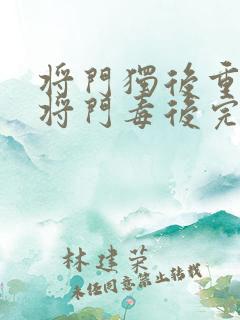 将門獨後重
将門毒後完
林建荣
未经同意禁止转载